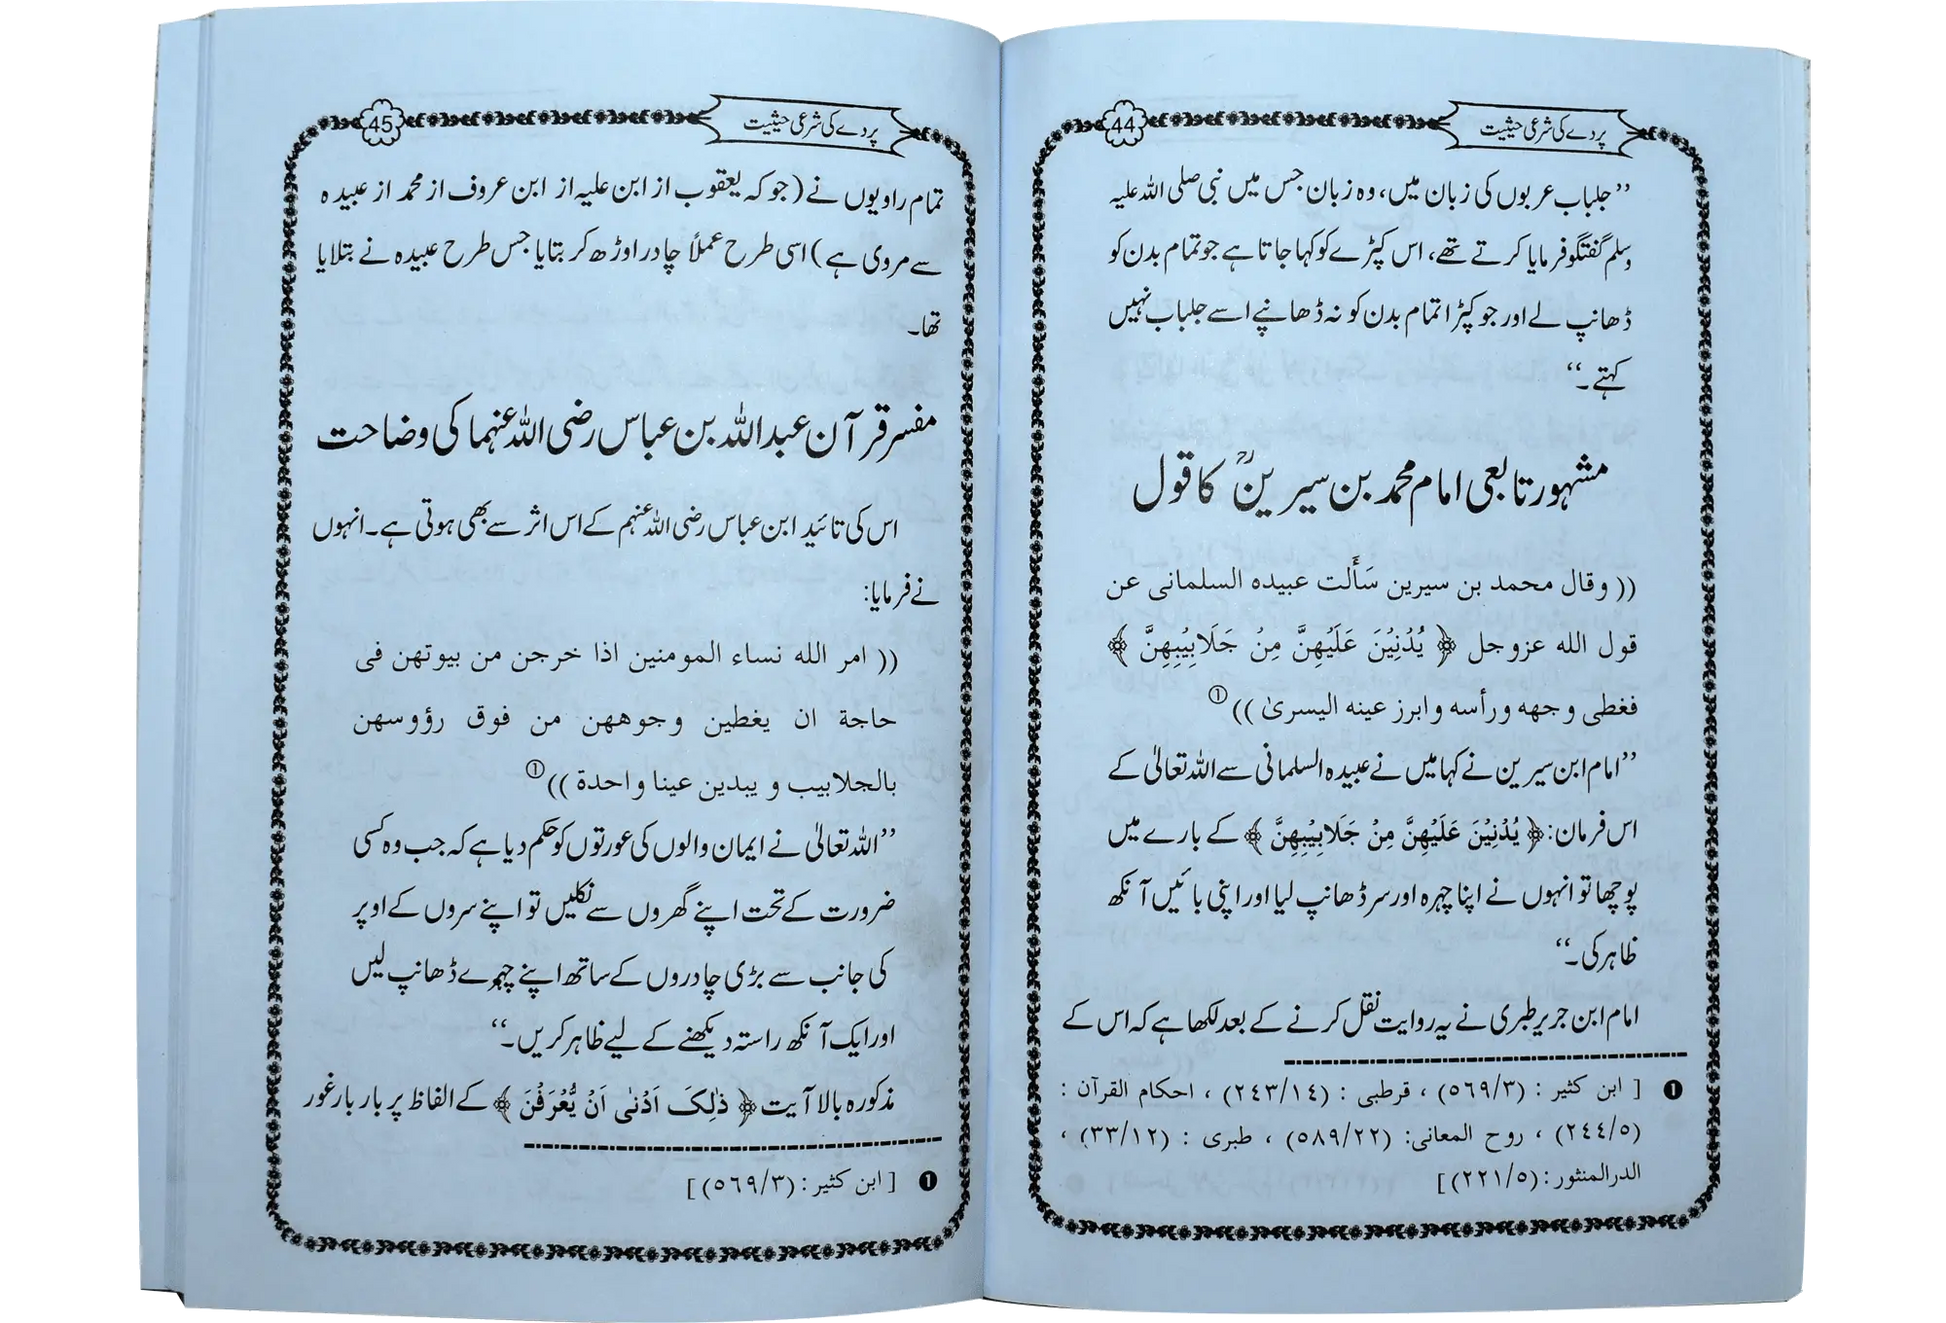 پردے کی شرعی حیثیت
44
’’جلباب عربوں کی زبان میں، وہ زبان جس میں نبی صلی اللہ علیہ
وسلم گفتگو فرمایا کرتے تھے، اس کپڑے کو کہا جاتا ہے جو تمام بدن کو
ڈھانپ لے اور جو کپڑا تمام بدن کو نہ ڈھانپے اسے جلباب نہیں
کہتے۔‘‘
مشہور تابعی امام محمد بن سیرینؒ کا قول
(( وقال محمد بن سیرین سَأَلت عبیدہ السلمانی عن
قول الله عزوجل ﴿ یُدْنِیْنَ عَلَیْهِنَّ مِنْ جَلَابِیْبِهِنَّ ﴾
فغطی وجهه ورأسه وابرز عینه الیسریٰ ))①
’’امام ابن سیرین نے کہا میں نے عبیدہ السلمانی سے اللہ تعالیٰ کے
اس فرمان: ﴿ یُدْنِیْنَ عَلَیْهِنَّ مِنْ جَلَابِیْبِهِنَّ ﴾ کے بارے میں
پوچھا تو انہوں نے اپنا چہرہ اور سر ڈھانپ لیا اور اپنی بائیں آنکھ
ظاہر کی۔‘‘
امام ابن جریر طبری نے یہ روایت نقل کرنے کے بعد لکھا ہے کہ اس کے
❶ [ ابن کثیر : (٥٦٩/٣) ، قرطبی : (٢٤٣/١٤) ، احکام القرآن :
(٢٤٤/٥) ، روح المعانی: (٥٨٩/٢٢) ، طبری : (٣٣/١٢) ،
الدرالمنثور: (٢٢١/٥)]
پردے کی شرعی حیثیت
45
تمام راویوں نے (جو کہ یعقوب از ابن علیہ از ابن عروف از محمد از عبیدہ
سے مروی ہے) اسی طرح عملاً چادر اوڑھ کر بتایا جس طرح عبیدہ نے بتلایا
تھا۔
مفسر قرآن عبداللہ بن عباس رضی اللہ عنہما کی وضاحت
اس کی تائید ابن عباس رضی اللہ عنہم کے اس اثر سے بھی ہوتی ہے۔ انہوں
نے فرمایا:
(( امر الله نساء المومنین اذا خرجن من بیوتهن فی
حاجة ان یغطین وجوههن من فوق رؤوسهن
بالجلابیب و یبدین عینا واحدة ))①
’’اللہ تعالیٰ نے ایمان والوں کی عورتوں کو حکم دیا ہے کہ جب وہ کسی
ضرورت کے تحت اپنے گھروں سے نکلیں تو اپنے سروں کے اوپر
کی جانب سے بڑی چادروں کے ساتھ اپنے چہرے ڈھانپ لیں
اور ایک آنکھ راستہ دیکھنے کے لیے ظاہر کریں۔‘‘
مذکورہ بالا آیت ﴿ ذٰلِکَ اَدْنٰی اَنْ یُّعْرَفْنَ ﴾ کے الفاظ پر بار بار غور
❶ [ ابن کثیر : (٥٦٩/٣)]